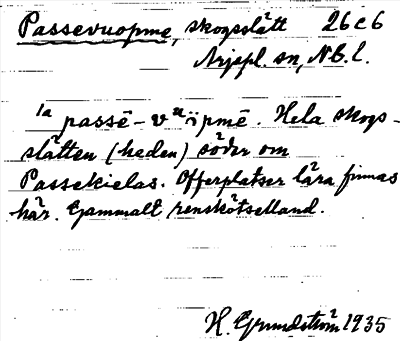 Passevuopme, skogsslätt 26 c 6
Arjepl. sn, N.B.l.
1a passē-vᵘöpmē. Hela skogs-
slätten (heden) söder om
Passekielas. Offerplatser lära finnas
här. Gammalt renskötselland.
H. Grundström 1935